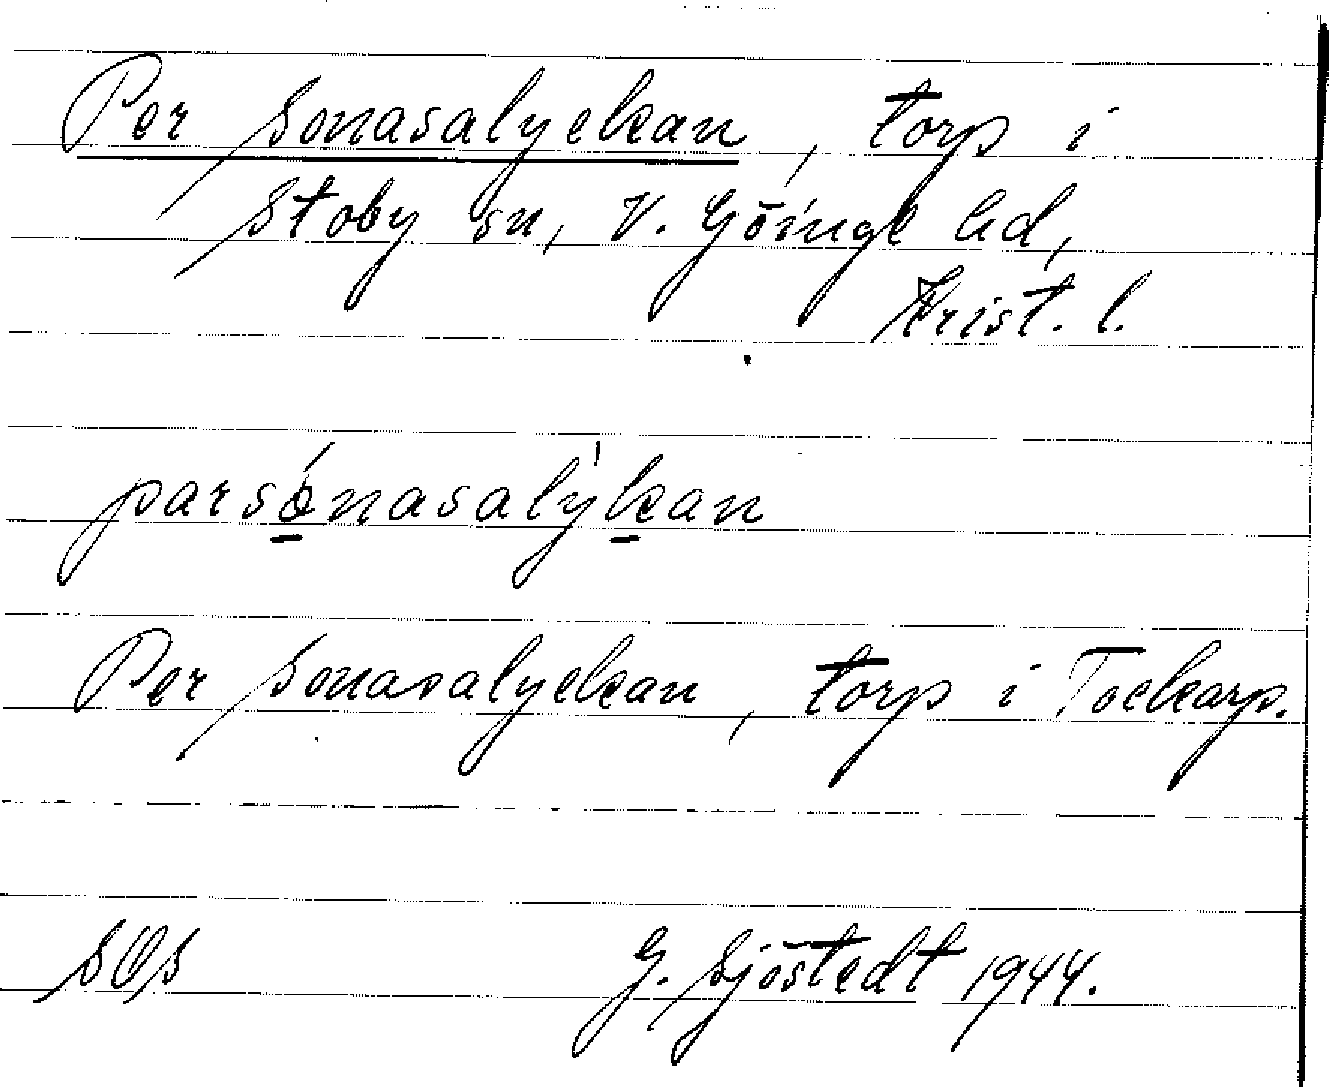 Per Sonasalyckan, torp i
Stoby sn, V. Göinge hd,
Krist. l.
parsónasalýkan
Per Sonasalyckan, torp i Tockarp.
SOS G. Sjöstedt 1944.